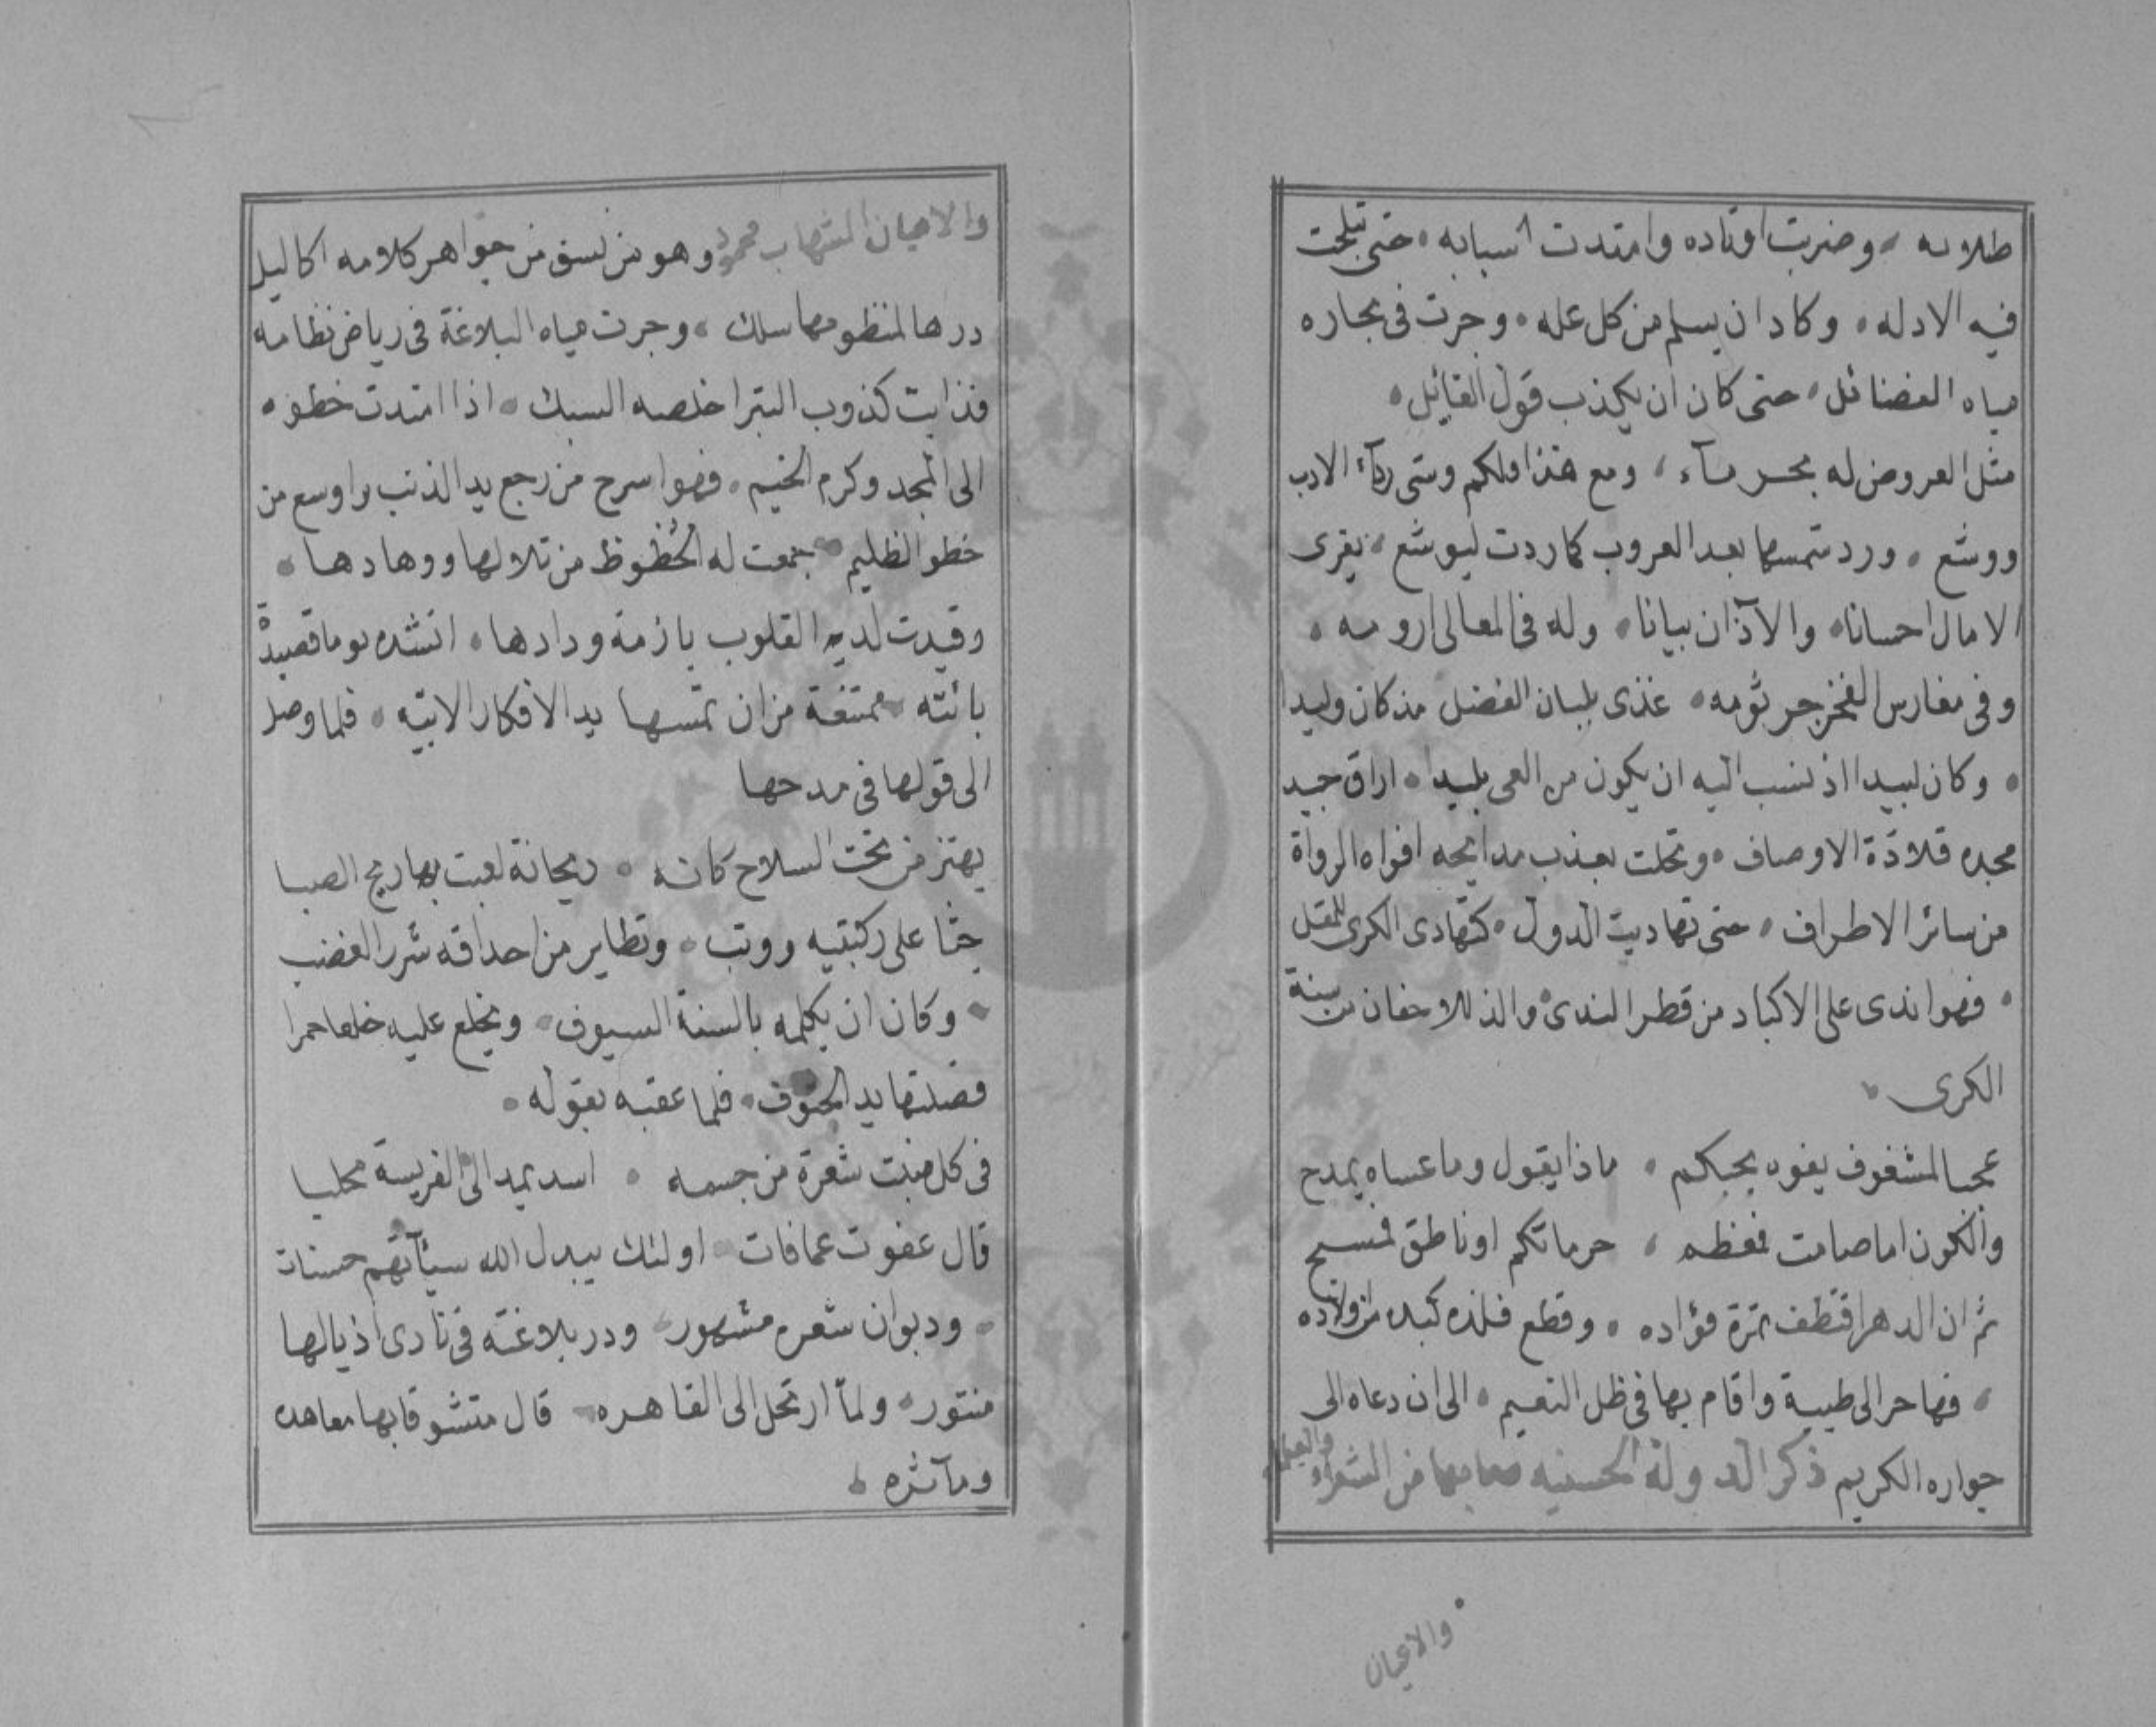 طلابه • وضربت اوتاده وامتدت اسبابه • حتى تبلجت
فيه الادله • وكاد ان يسلم من كل عله • وجرت في بحاره
مياه الفضائل • حتى كان ان يكذب قول القايل •
مثل العروض له بحر بلا ماء • ومع هذا فلكم وشى ردآء الادب
ووشع • ورد شمسها بعد الغروب كما ردت ليوشع • يقرى
الامال احسانا • والآذان بيانا • وله في المعالى ارومه •
وفى مغارس الفخر جرثومه • غذى بلبان الفضل مذ كان وليدا
• وكان لبيدا اذ نسب اليه ان يكون من العى بليدا • اراق جيد
مجده قلادة الاوصاف • وتحلت بعذب مدايحه افواه الرواة
من سائر الاطراف • حتى تهاديت الدول • كتهادى الكرى للمقل
• فهو اندى على الاكباد من قطر الندى • والذ للاجفان من سنة
الكرى •
عجبا لمشغوف يفوه بحبكم • ماذا يقول وما عساه يمدح
والكون اما صامت فمعظم • حرماتكم او ناطق فمسبح
ثم ان الدهر اقتطف ثمرة فؤاده • وقطع فلذه كبده من اولاده
• فهاجر الى طيبة واقام بها فى ظل النعيم • الى ان دعاه الى
جواره الكريم ذكر الدولة الحسنيه وما بها من الشعراء والعلماء
والاعيان
والاعيان الشهاب محمود وهو من نسق من جواهر كلامه اكاليل
درها المنظوم بها سلك • وجرت مياه البلاغة فى رياض نظامه
فذابت كذوب التبر اخلصه السبك • اذا امتدت خطوه
الى المجد وكرم الخيم • فهو اسرح من رجع يد الذنب واوسع من
خطو الظليم • جمعت له الحظوظ من تلالها ووهادها •
وقيدت لديه القلوب بازمة ودادها • انشده يوما قصيدة
بائته • ممتنعة من ان تمسها يد الافكار الابيه • فلما وصل
الى قولها فى مدحها
يهتز من تحت السلاح كانه • ريحانة لعبت بها ريح الصبا
جثا على ركبتيه ووثب • وتطاير من احداقه شرر الغضب
• وكان ان يكلمه بالسنة السيوف • ويخلع عليه خلعا حمرا
فصلتها يد الحتوف • فلما عقبه بقوله •
فى كل منبت شعرة من جسمه • اسد يمد الى الفريسة مخلبا
قال عفوت عما فات • اولئك يبدل الله سيئاتهم حسنات
• وديوان شعره مشهور • ودر بلاغته فى نادى اذيالها
منثور • ولما ارتحل الى القاهره • قال متشوقا بها معاهده
ومآثره